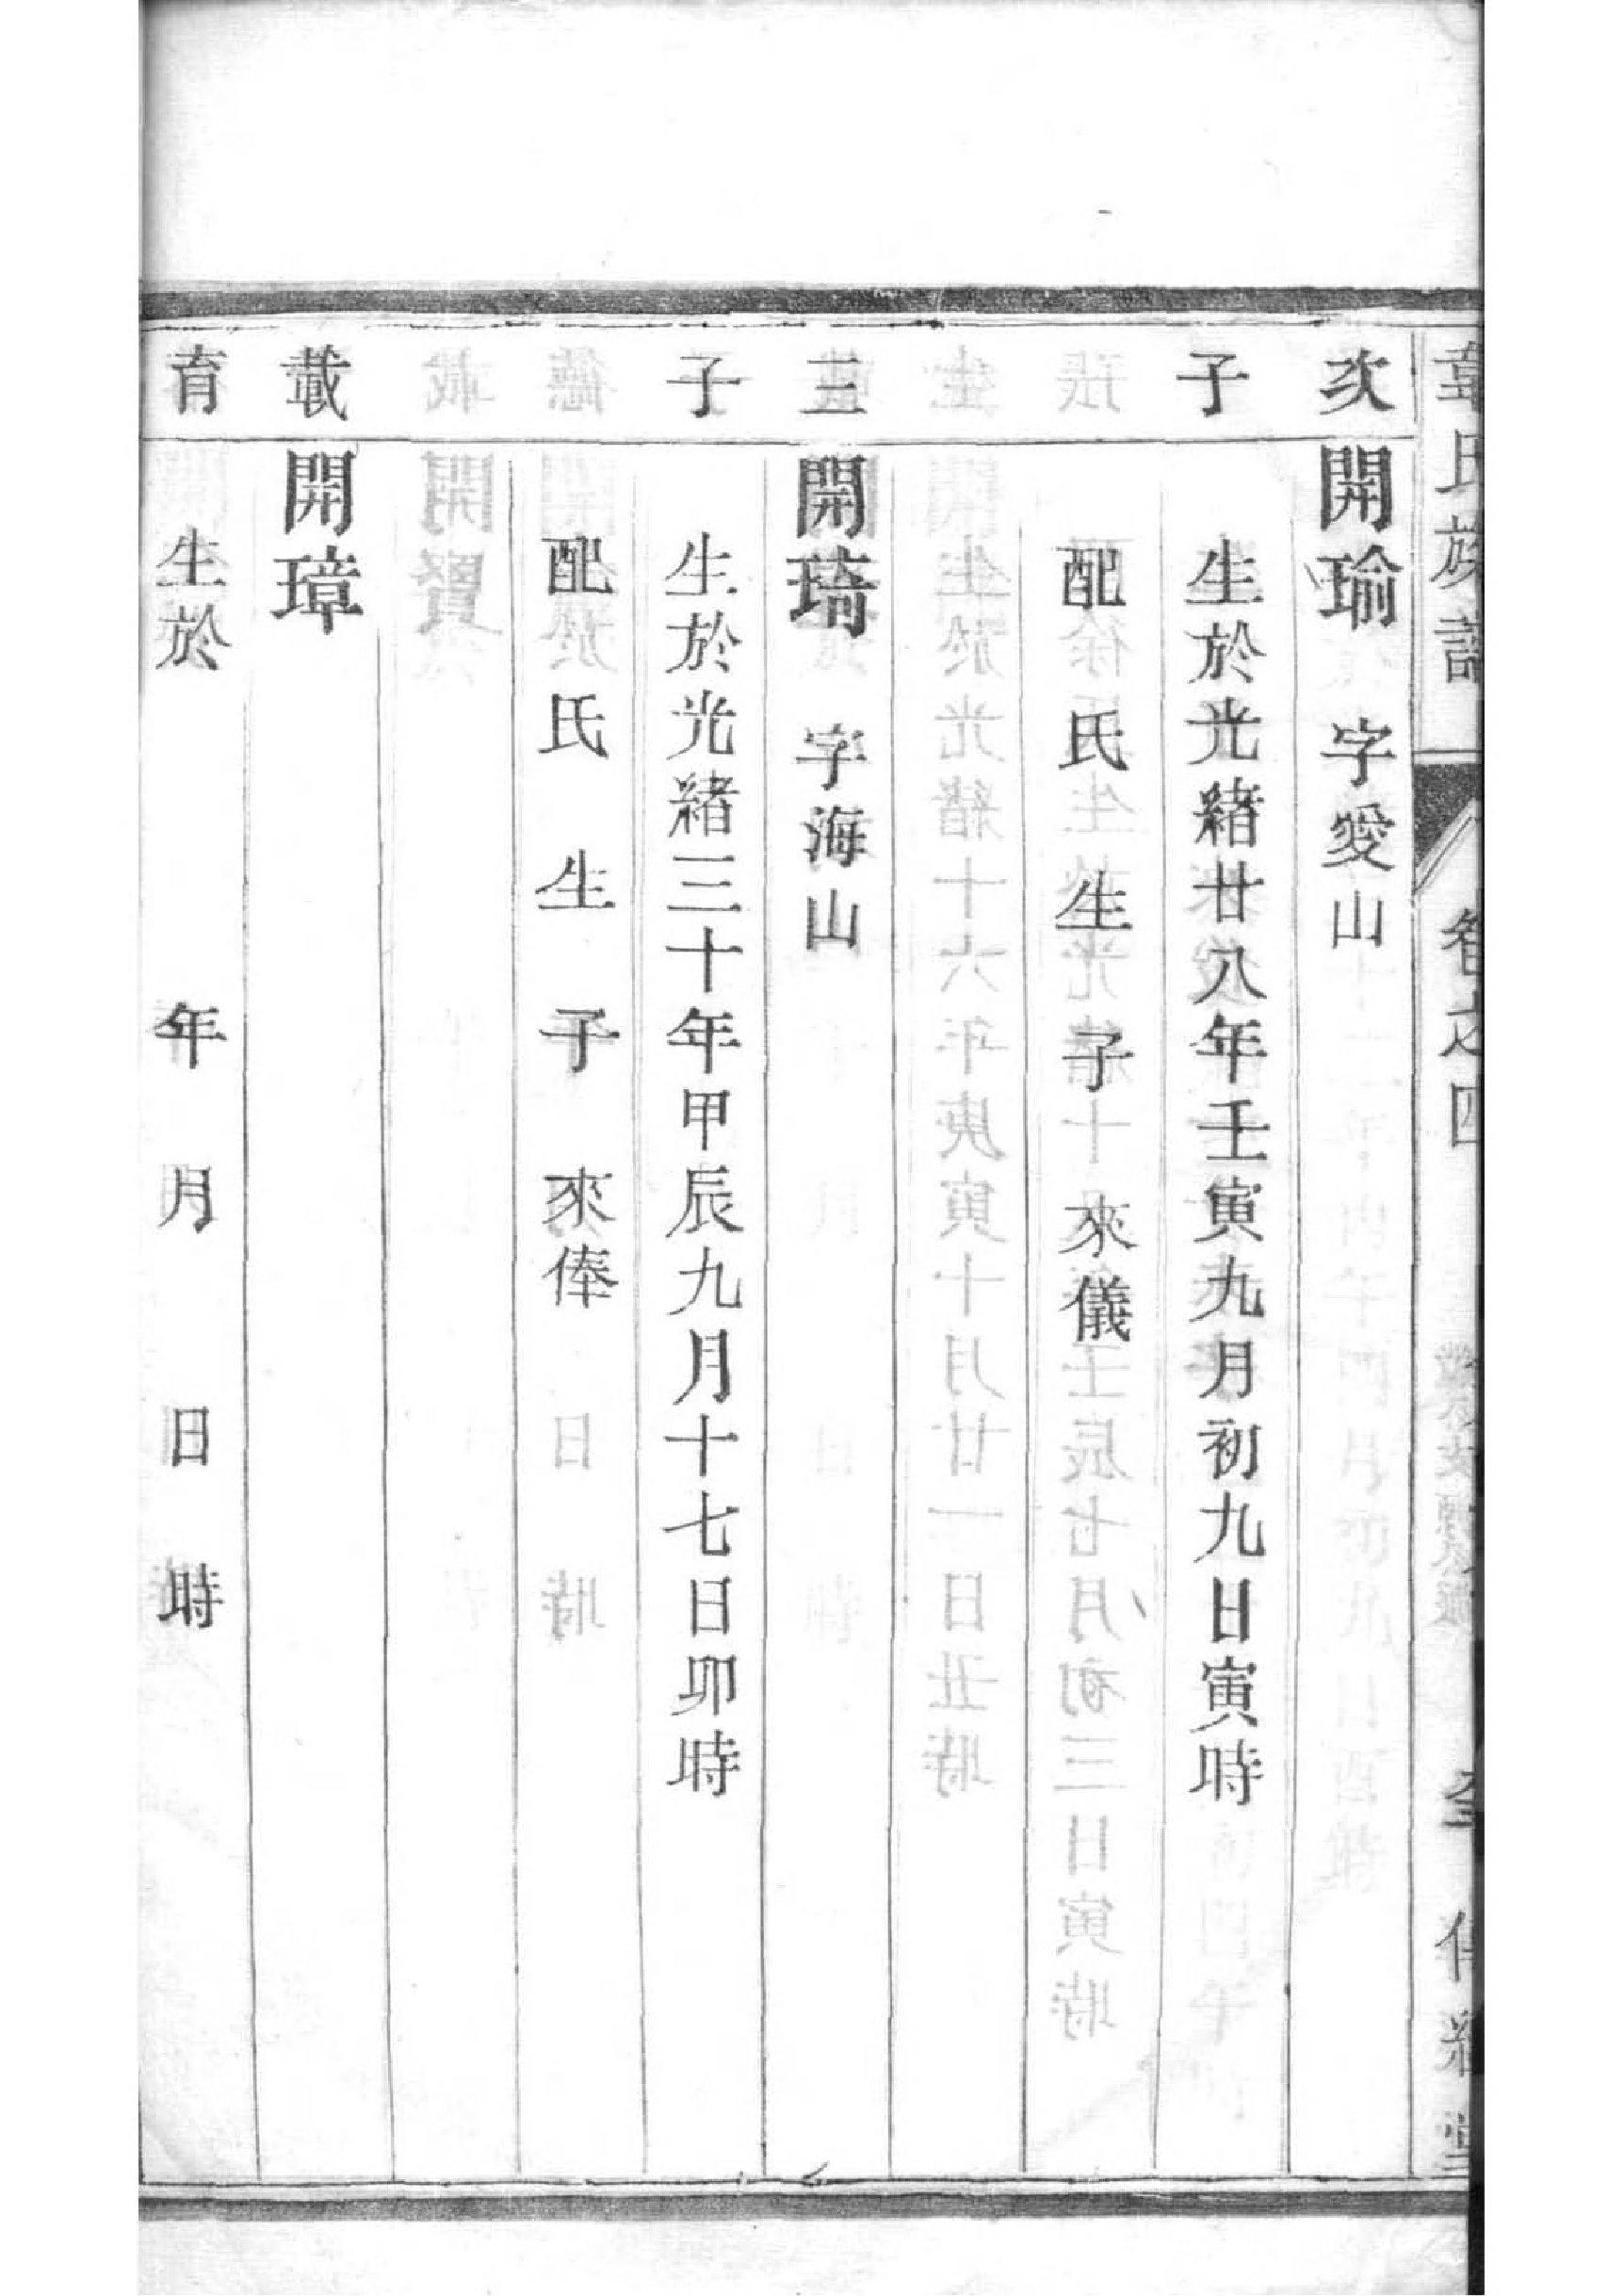 韋氏族譜 卷之四 傳經堂
次 開瑜 字愛山
子 生於光緒廿八年壬寅九月初九日寅時
配 氏 生 子 來儀
三 開琦 字海山
子 生於光緒三十年甲辰九月十七日卯時
配 氏 生 子 來俸
載 開璋
育 生於 年 月 日 時